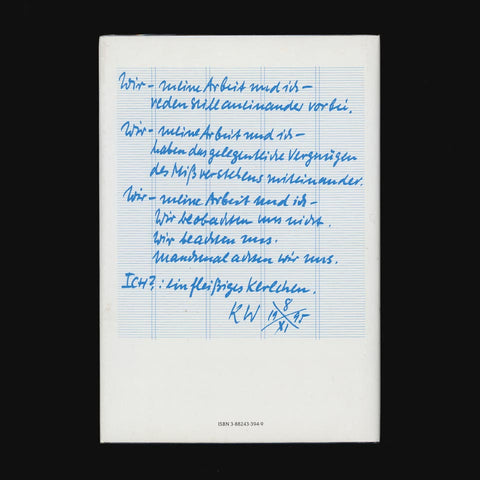 Wir – meine Arbeit und ich –
reden still aneinander vorbei.
Wir – meine Arbeit und ich –
haben das gelegentliche Vergnügen
des Mißverstehens miteinander.
Wir – meine Arbeit und ich –
Wir beobachten uns nicht.
Wir beachten uns.
Manchmal achten wir uns.
ICH?: ein fleißiges Kerlchen.
KW 8 XI 19 95
ISBN 3-88243-394-9